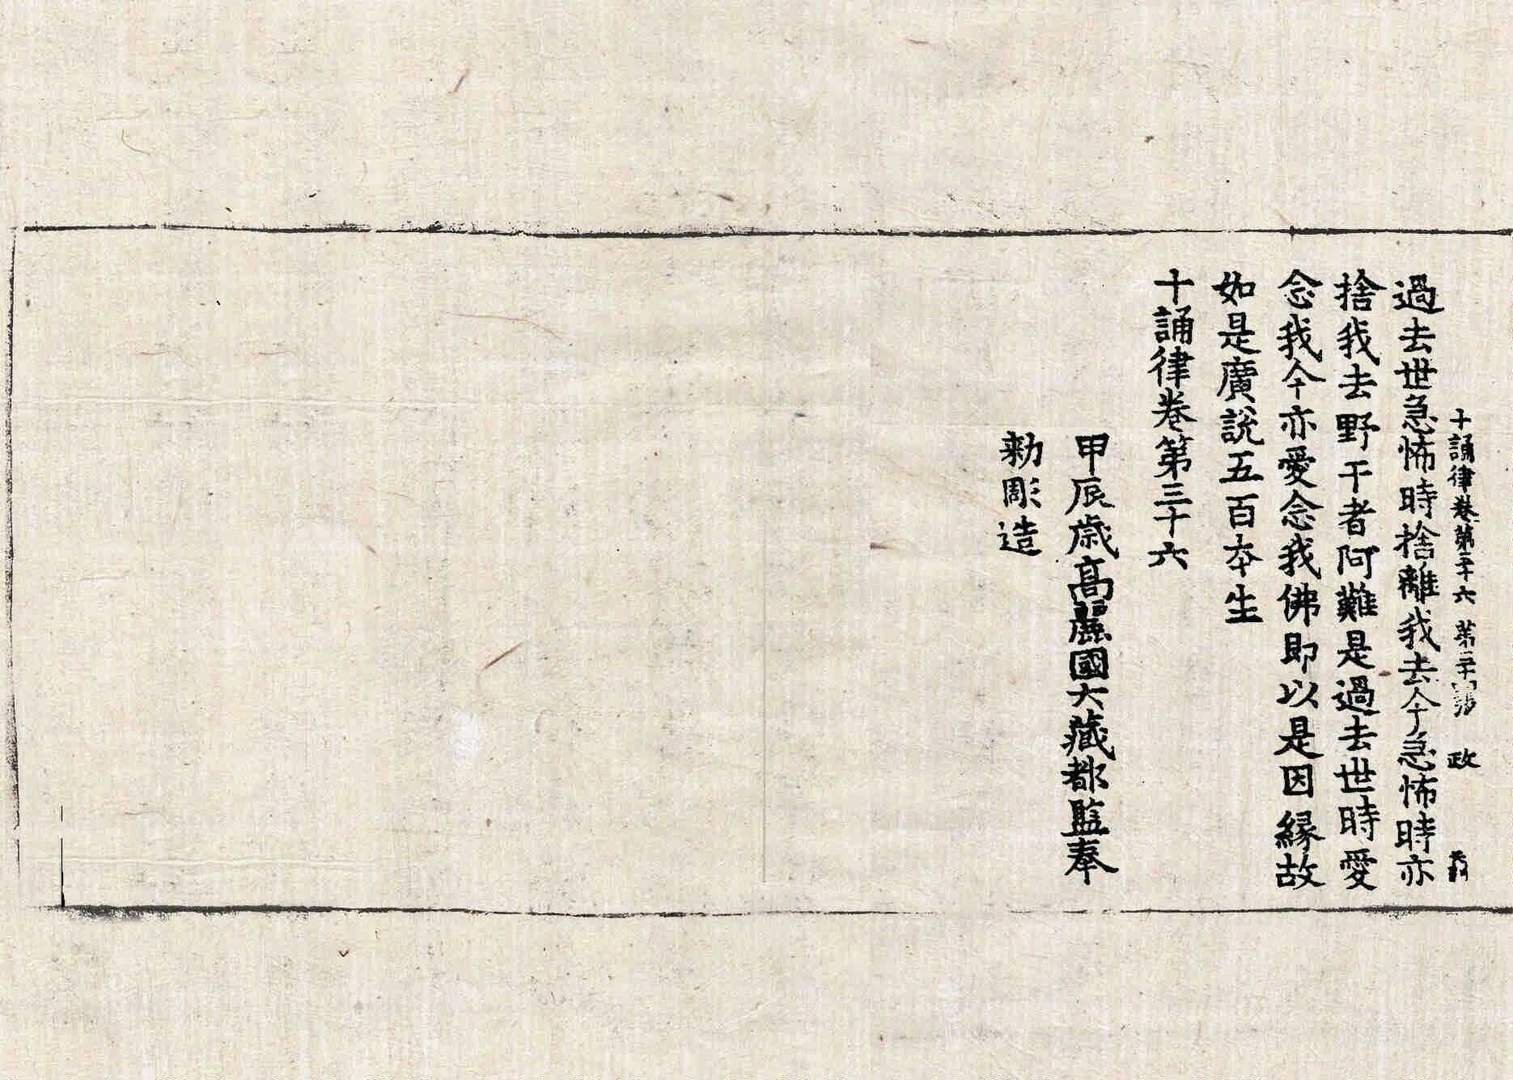 十誦律卷第三十六 第 張 政
過去世急怖時捨離我去今急怖時亦
捨我去野干者阿難是過去世時愛
念我今亦愛念我佛即以是因緣故
如是廣說五百本生
十誦律卷第三十六
甲辰歲高麗國大藏都監奉
勑彫造